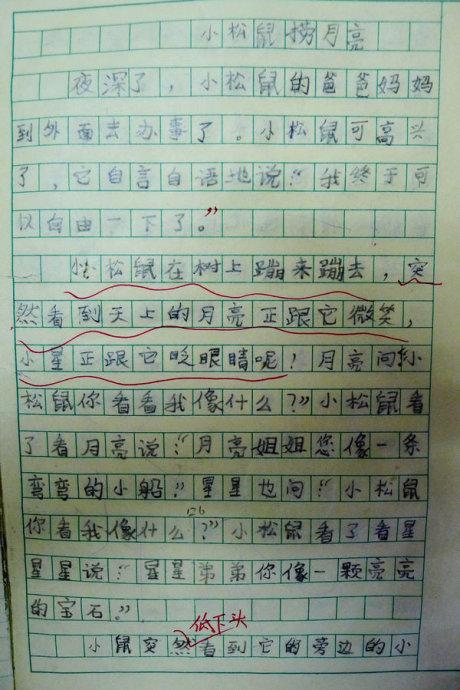 小松鼠捞月亮
夜深了，小松鼠的爸爸妈妈
到外面去办事了。小松鼠可高兴
了，它自言自语地说：“我终于可
以自由一下了。”
小松鼠在树上蹦来蹦去，突
然看到天上的月亮正跟它微笑，
小星正跟它眨眼睛呢！月亮问小
松鼠你看看我像什么？”小松鼠看
了看月亮说：“月亮姐姐您像一条
弯弯的小船。”星星也问：“小松鼠
你看我像什么？”小松鼠看了看星
星星说：“星星弟弟你像一颗亮亮
的宝石。”
低下头
小鼠突然看到它的旁边的小